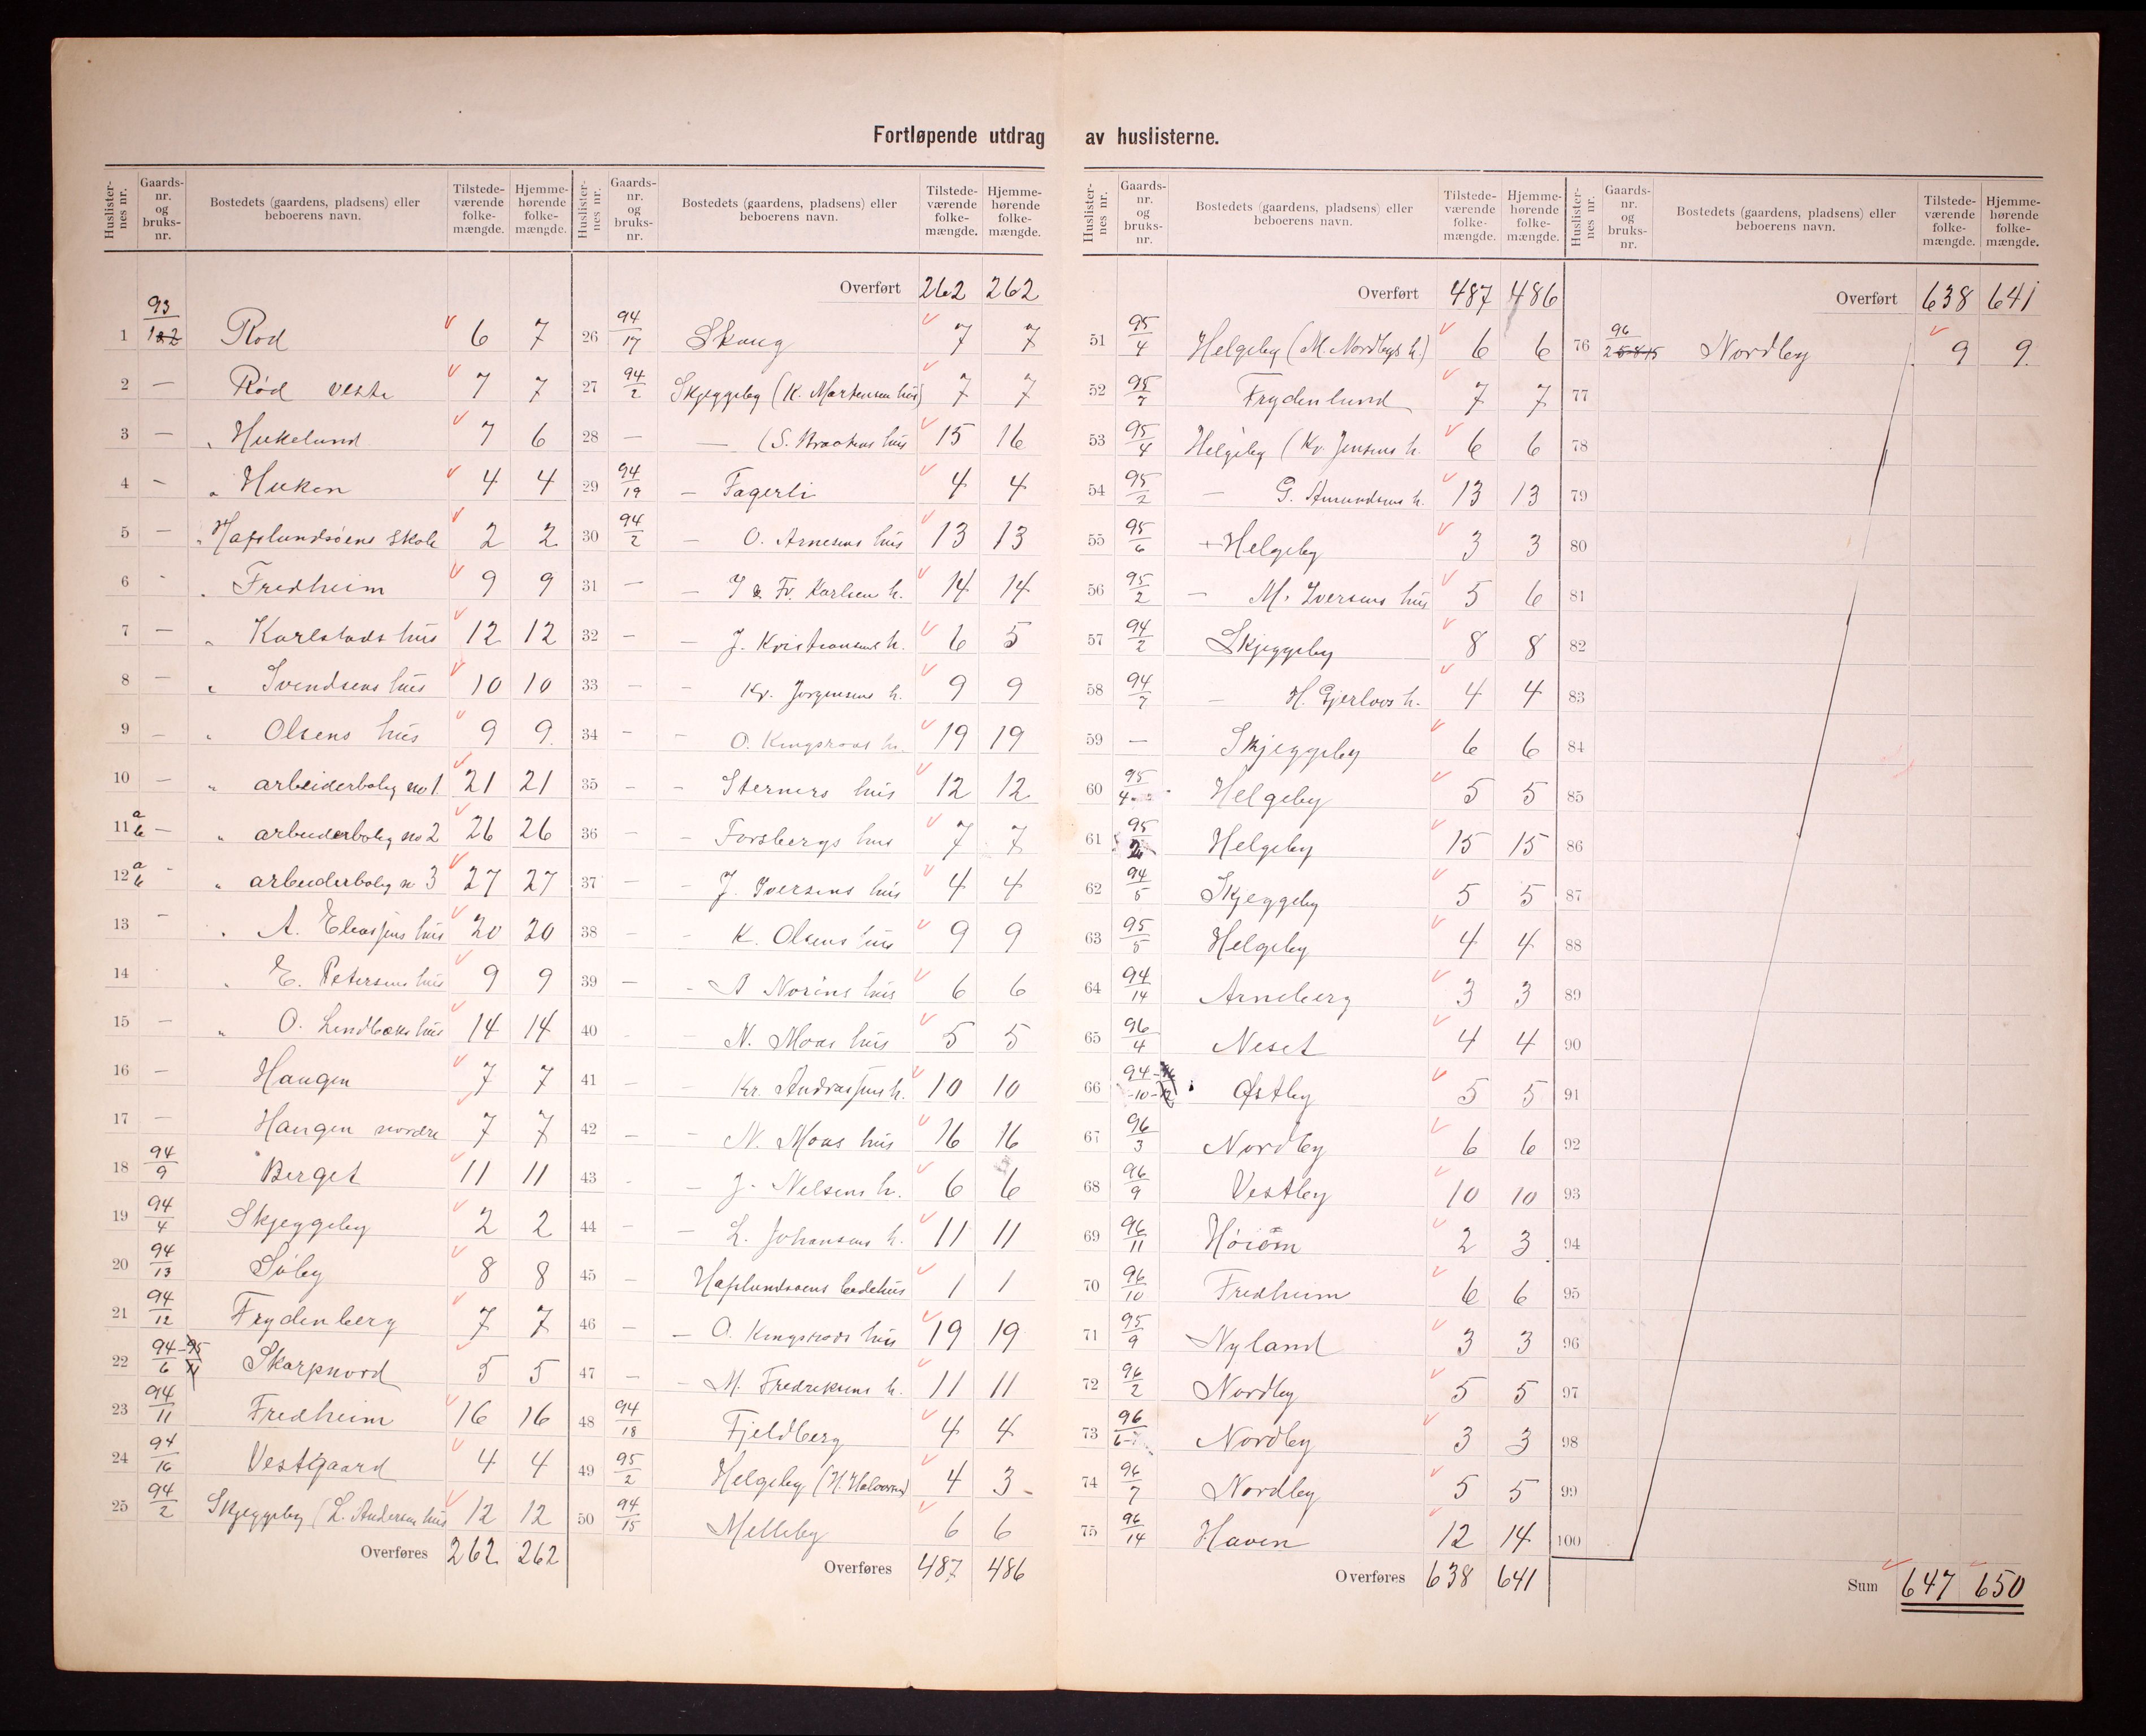 Fortløpende utdrag av huslisterne.
Huslisternes nr. Gaards-nr. og bruks-nr. Bostedets (gaardens, pladsens) eller beboerens navn. Tilstedeværende folkemængde. Hjemmehørende folkemængde.
1 93/1 Rød 6 7
2 — Rød vestre 7 7
3 — „ Hukelund 7 6
4 - „ Huken 4 4
5 — „ Hafslundsøens skole 2 2
6 - „ Fredheim 9 9
7 — „ Karlstads hus 12 12
8 — „ Svendsens hus 10 10
9 — „ Olsens hus 9 9
10 — „ arbeiderbolig no 1 21 21
11 a b — „ arbeiderbolig no 2 26 26
12 a b - „ arbeiderbolig n 3 27 27
13 - „ A. Eliassens hus 20 20
14 „ E. Petersens hus 9 9
15 — „ O. Lundbæks hus 14 14
16 — Haugen 7 7
17 — Haugen nordre 7 7
18 94/9 Berget 11 11
19 94/4 Skjeggeby 2 2
20 94/13 Søby 8 8
21 94/12 Frydenberg 7 7
22 94/6 Skarpnord 5 5
23 94/11 Fredheim 16 16
24 94/16 Vestgaard 4 4
25 94/2 Skjeggeby (L. Andersen hus 12 12
Overføres 262 262
Huslisternes nr. Gaards-nr. og bruks-nr. Bostedets (gaardens, pladsens) eller beboerens navn. Tilstedeværende folkemængde. Hjemmehørende folkemængde.
Overført 262 262
26 94/17 Skaug 7 7
27 94/2 Skjeggeby (K. Martensen hus) 7 7
28 — — (S. Braatens hus 15 16
29 94/19 — Fagerli 4 4
30 94/2 — O. Arnesens hus 13 13
31 — — J & Fr. Karlsens h. 14 14
32 — — J. Kristiansens h. 6 5
33 — — Kr. Jørgensens h. 9 9
34 — — O. Kingsrøds h. 19 19
35 — — Sterners hus 12 12
36 — — Forsbergs hus 7 7
37 — — J. Iversens hus 4 4
38 — — K. Olsens hus 9 9
39 — - A Norins hus 6 6
40 - — N. Moas hus 5 5
41 — - Kr. Andreassens h. 10 10
42 — — N. Moas hus 16 16
43 - — J. Nelsens h. 6 6
44 — — L. Johansens h. 11 11
45 — Hafslundsøens bedehus 1 1
46 — — O. Kingsrøds hus 19 19
47 — — M. Fredriksens h. 11 11
48 94/18 Fjeldberg 4 4
49 95/2 Helgeby (H. Halvorsen) 4 3
50 94/15 Melleby 6 6
Overføres 487 486
Huslisternes nr. Gaards-nr. og bruks-nr. Bostedets (gaardens, pladsens) eller beboerens navn. Tilstedeværende folkemængde. Hjemmehørende folkemængde.
Overført 487 486
51 95/4 Helgeby (M. Nordbys h.) 6 6
52 95/7 Frydenlund 7 7
53 95/4 Helgeby (Kr. Jensens h. 6 6
54 95/2 — G. Amundsens h. 13 13
55 95/6 + Helgeby 3 3
56 95/2 — M. Iversens hus 5 6
57 94/2 Skjeggeby 8 8
58 94/7 — H. Gjerløvs h. 4 4
59 — Skjeggeby 6 6
60 95/4 Helgeby 5 5
61 95/2 Helgeby 15 15
62 94/5 Skjeggeby 5 5
63 95/5 Helgeby 4 4
64 94/14 Arneberg 3 3
65 96/4 Neset 4 4
66 94/10 Østby 5 5
67 96/3 Nordby 6 6
68 96/9 Vestby 10 10
69 96/11 Høiom 2 3
70 96/10 Fredheim 6 6
71 95/9 Nyland 3 3
72 96/2 Nordby 5 5
73 96/6 Nordby 3 3
74 96/7 Nordby 5 5
75 96/14 Haven 12 14
Overføres 638 641
Huslisternes nr. Gaards-nr. og bruks-nr. Bostedets (gaardens, pladsens) eller beboerens navn. Tilstedeværende folkemængde. Hjemmehørende folkemængde.
Overført 638 641
76 96/2 Nordby 9 9
77
78
79
80
81
82
83
84
85
86
87
88
89
90
91
92
93
94
95
96
97
98
99
100
Sum 647 650